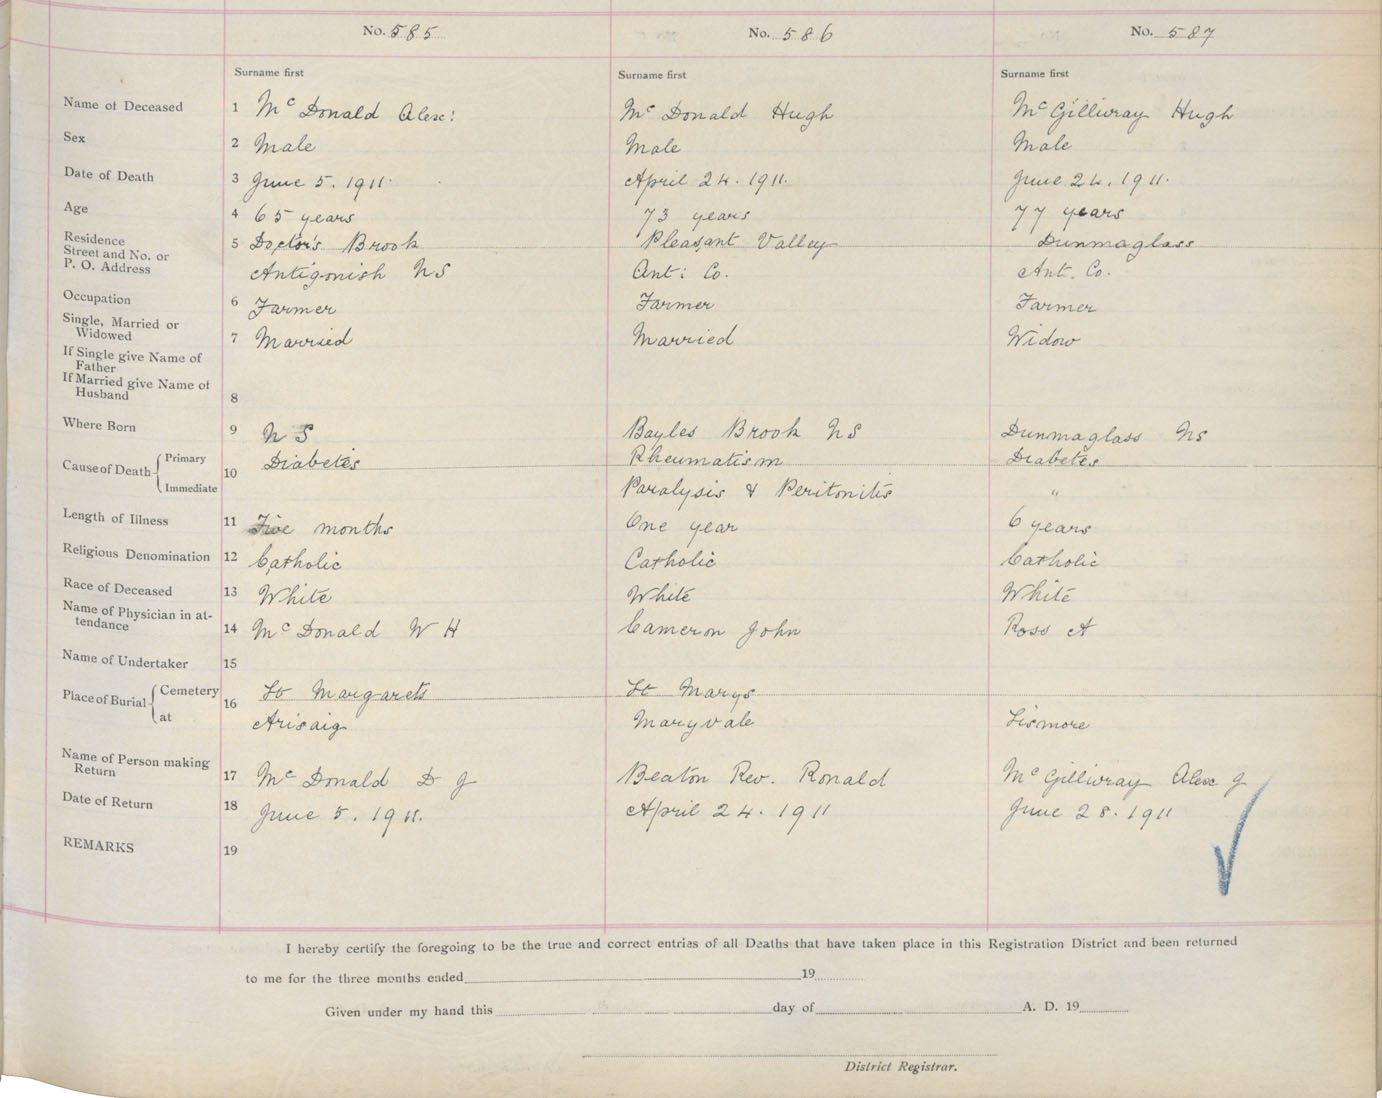 No. 585 No. 586 No. 587
Surname first Surname first Surname first
Name of Deceased 1 Mc Donald Alex: Mc Donald Hugh Mc Gillivray Hugh
Sex 2 Male Male Male
Date of Death 3 June 5. 1911. April 24. 1911. June 24. 1911.
Age 4 65 years 73 years 77 years
Residence 5 Doctor's Brook Pleasant Valley Dunmaglass
Street and No. or
P. O. Address Antigonish NS Ant: Co. Ant. Co.
Occupation 6 Farmer Farmer Farmer
Single, Married or
Widowed 7 Married Married Widow
If Single give Name of
Father
If Married give Name of
Husband 8
Where Born 9 N S Bayles Brook NS Dunmaglass NS
Cause of Death Primary 10 Diabetes Rheumatism Diabetes
Immediate Paralysis & Peritonitis "
Length of Illness 11 Five months One year 6 years
Religious Denomination 12 Catholic Catholic Catholic
Race of Deceased 13 White White White
Name of Physician in at-
tendance 14 Mc Donald W H Cameron John Ross A
Name of Undertaker 15
Place of Burial Cemetery 16 St Margarets St Marys
at Arisaig Maryvale Lismore
Name of Person making
Return 17 Mc Donald D J Beaton Rev. Ronald Mc Gillivray Alex J
Date of Return 18 June 5. 1911. April 24. 1911 June 28. 1911
REMARKS 19
I hereby certify the foregoing to be the true and correct entries of all Deaths that have taken place in this Registration District and been returned
to me for the three months ended 19
Given under my hand this day of A. D. 19
District Registrar.